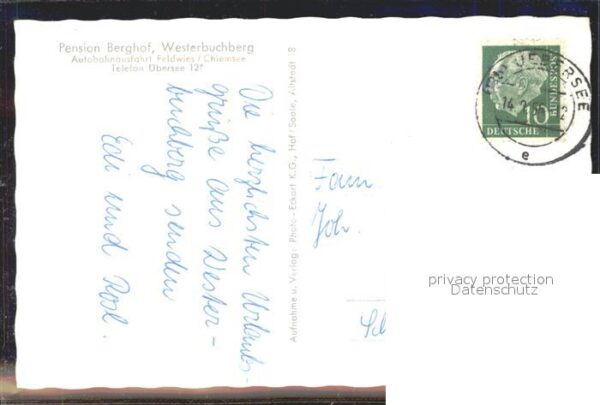 Pension Berghof, Westerbuchberg
Autobahnausfahrt Feldwies / Chiemsee
Telefon Übersee 127
Die herzlichsten Urlaubs-
grüße aus Wester-
buchberg senden
Edi und
Aufnahme u. Verlag: Photo-Eckart K.G., Hof/Saale, Altstadt 8
Fam.
Joh.
ÜBERSEE
14. 2.
e
10
DEUTSCHE
BUNDESPOST
privacy protection
Datenschutz